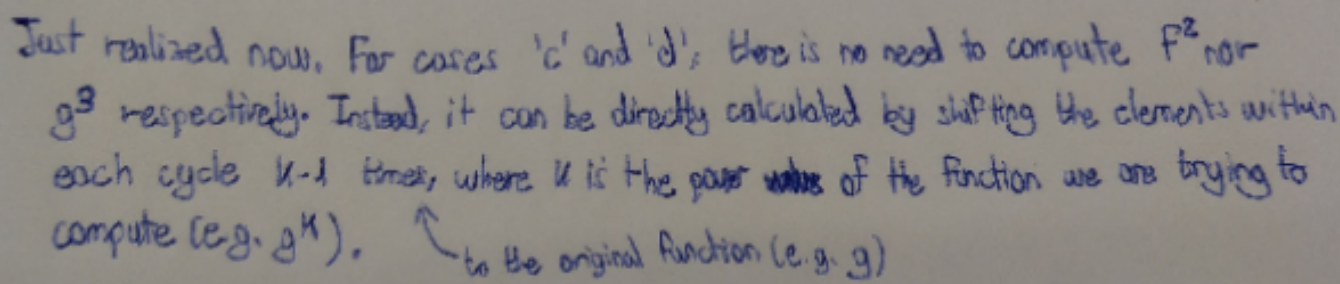 Just realized now. For cases 'c' and 'd', there is no need to compute f² nor
g³ respectively. Instead, it can be directly calculated by shifting the elements within
each cycle k-1 times, where k is the power of the function we are trying to
compute (e.g. gᵏ).
to the original function (e.g. g)